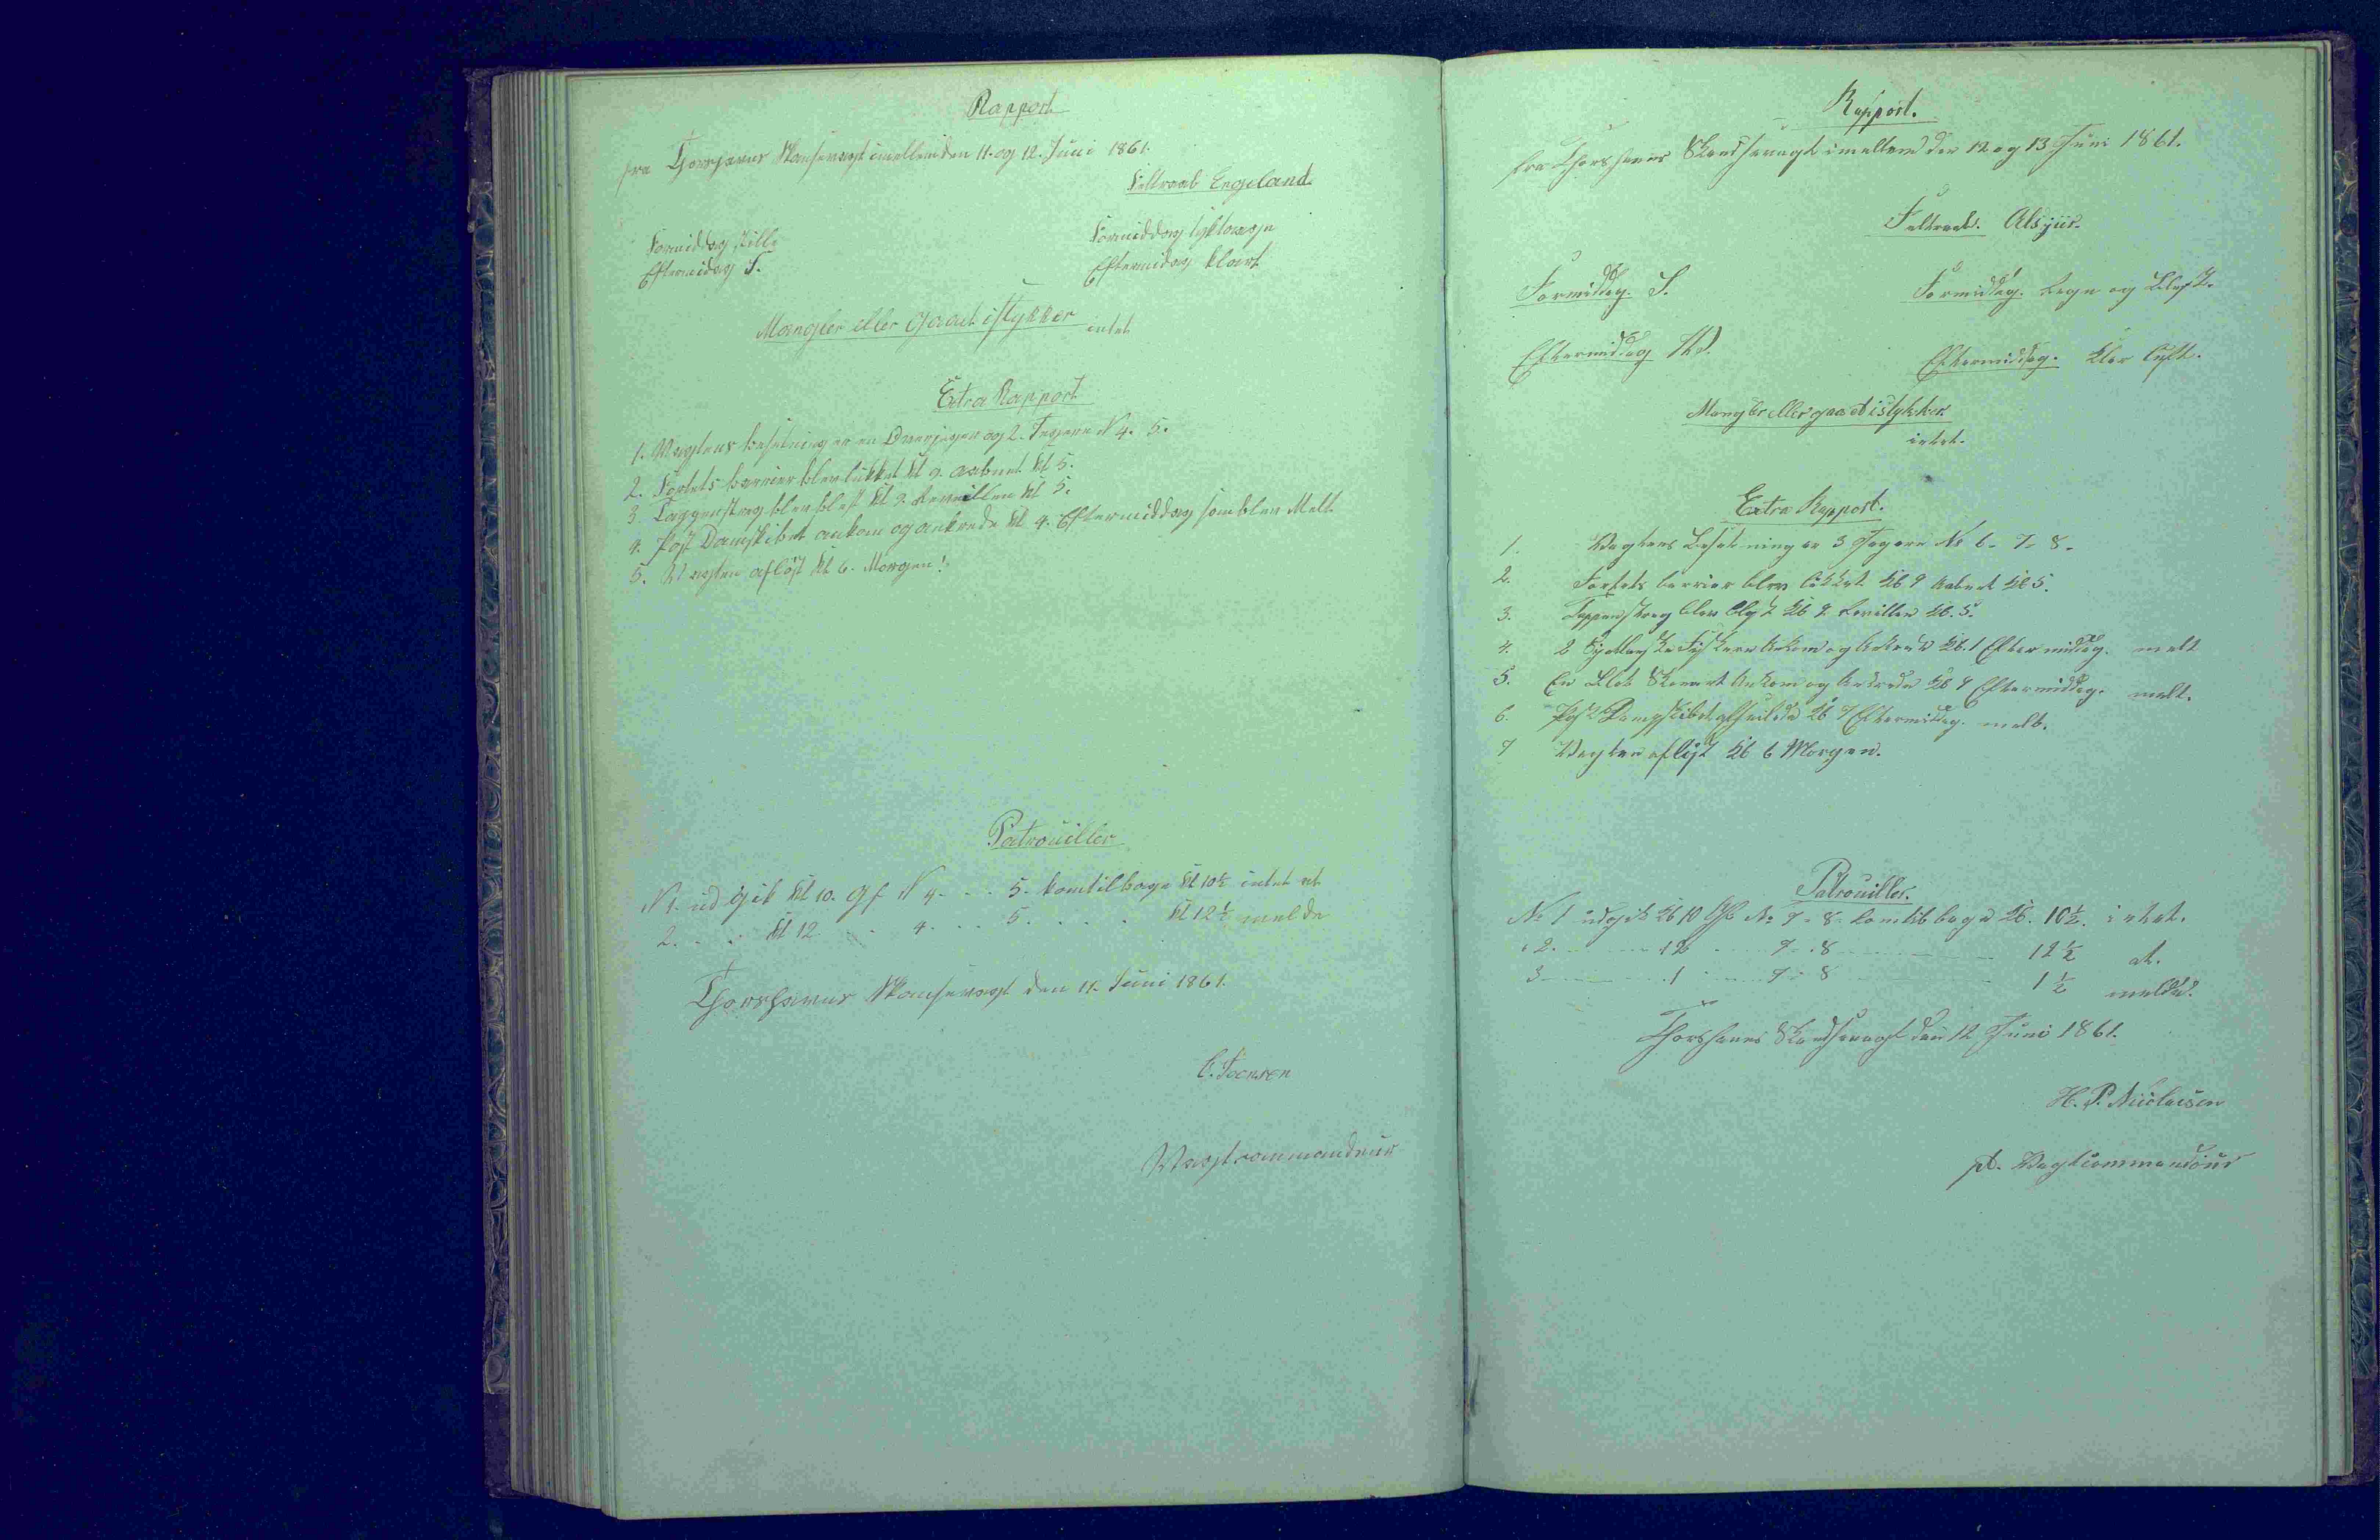 Rapport
fra Thorshavns Skansevagt imellem den 11. og 12. Juni 1861.
Feltraab Engeland
Formiddag stille
Formiddag tyktaage
Eftermidag S.
Eftermidag klart
Mangler eller Gaaet istykker intet
Extra Rapport
1. Wagtens besetning er en Overjæger og 2. Jegere N 4. 5.
2. Fortets barrier blev lukket Kl 9. aabnet Kl 5.
3. Tappenstreg blev blest Kl 9. Reveillen Kl 5.
4. Post Damskibet ankom og ankrede Kl 4. Eftermiddag som blev Melt
5. Wagten afløst Kl 6. Morgen!
Patrouiller
N 1. udgik Kl 10. Gf N 4. . . 5. kom tilbage Kl 10½ intet at
2. . . Kl 12 . . 4. . . 5. . . . Kl 12½ melde
Thorshavns Skansevagt den 11. Juni 1861.
C. Joensen
Wagtcommandeur
Rapport.
fra Thorshavns Skandsevagt imellem den 12 og 13 Juni 1861.
Feltraab.
Formiddag. S.
Formiddag. Regn og Blest.
Eftermiddag
Eftermiddag. klar Luft.
Mangler eller gaaet istykker
intet.
Extra Rapport.
1. Vagtens Besetning er 3 Jegere No 6 - 7 - 8 -
2. Fortets barrier blev lukket Kl 9 Aabnet Kl 5.
3. Tappenstreg blev blest Kl 9. Revillen Kl. 5.
4. 2 Fiskere Ankom og Ankrede Kl. 1 Eftermiddag. melt
5. En Ankom og Ankrede Kl 9 Eftermiddag. melt.
6. Post Dampskibet afseilede Kl 7 Eftermidag. melt.
7 Vagten afløst Kl 6 Morgen.
Patrouiller.
No 1 udgik Kl 10 Gf. No 7 - 8 - kom tilbage Kl. 10½. intet.
2. 12 7 - 8 12½ at.
3 1 7 - 8 1½ melde.
Thorshavns Skandsevagt den 12 Juni 1861.
H. P. Nicolaisen
pt. Vagtcommandeur